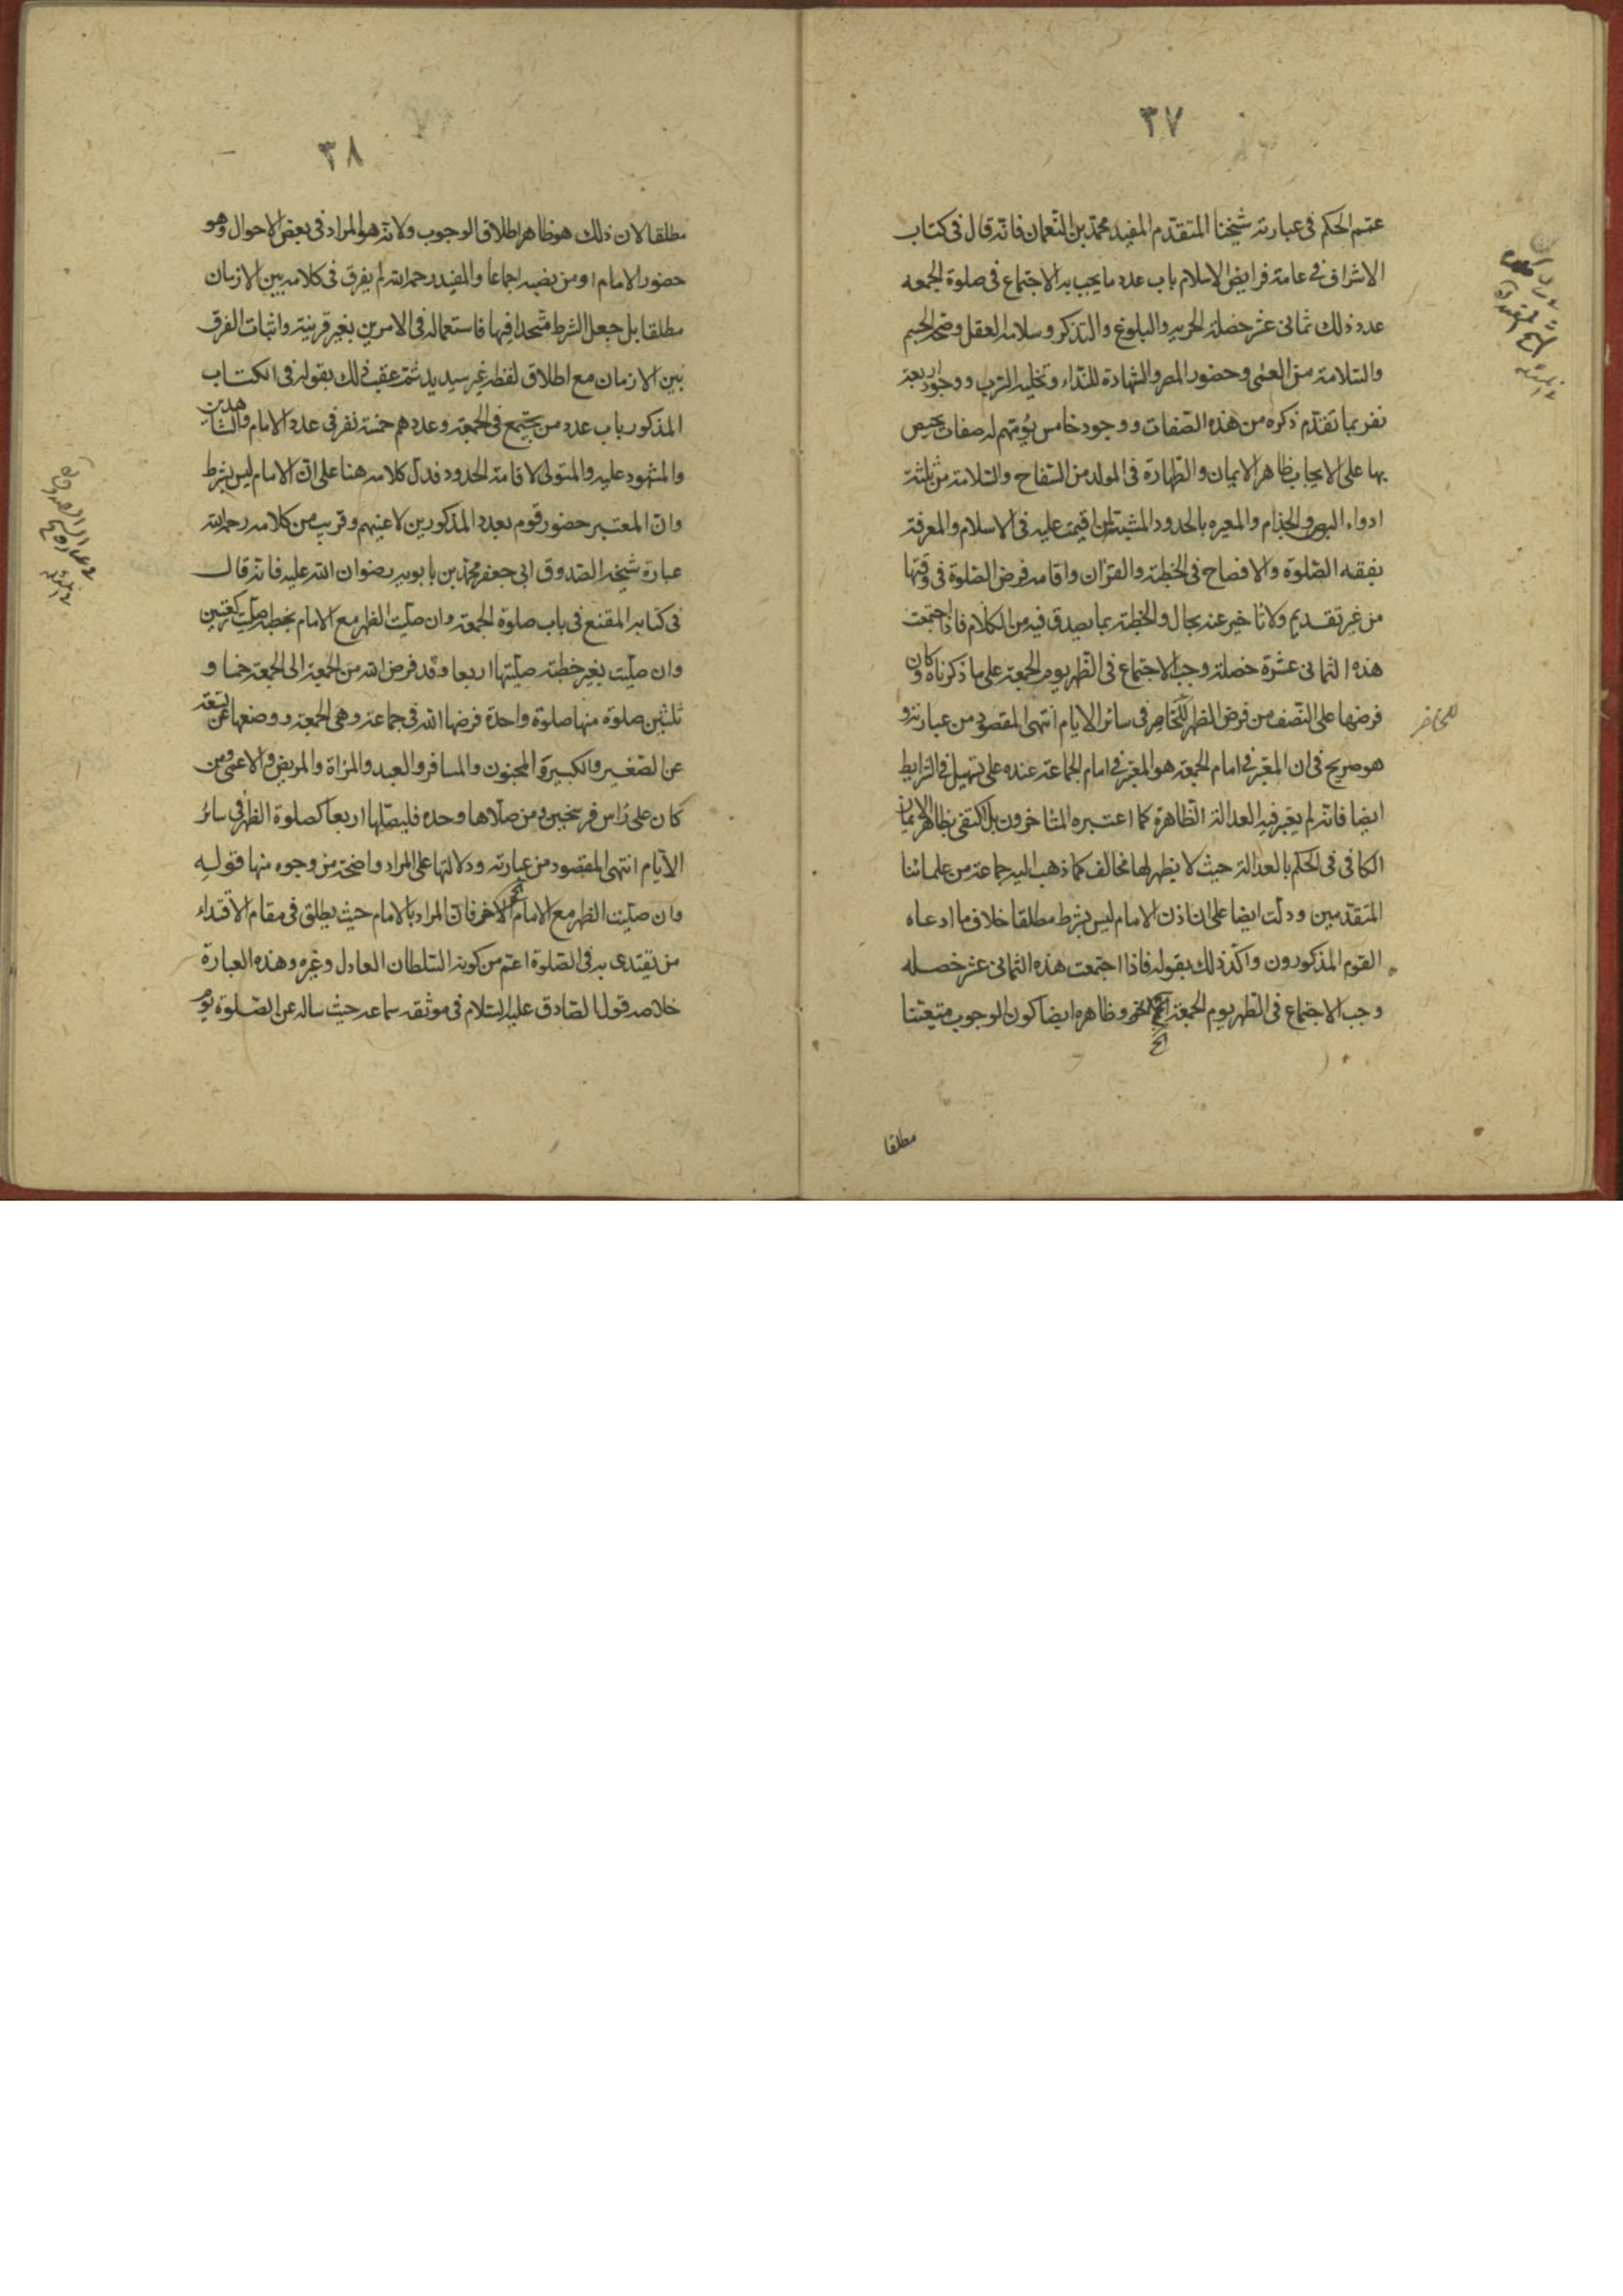 ٣٧
عمم الحكم فى عبارته شيخنا المتقدم المفيد محمد بن النعمان فانه قال فى كتاب
الاشراف فى عامة فرايض الاسلام باب عدد ما يجب به الاجتماع فى صلوة الجمعه
عدد ذلك ثمانى عشر خصلة الحريه والبلوغ والتذكر وسلامه العقل وصحة الجسم
والسلامة من العمى وحضور المصر والشهادة للنداء وتخليه السرب ووجود اربعة
نفر بما تقدم ذكره من هذه الصفات ووجود خامس يؤمهم له صفات يختص
بها على الايجاب ظاهر الايمان والطهارة فى المولد من السفاح والسلامة من ثلثة
ادواء البرص والجذام والمعيره بالحدود المشينة لمن اقيمت عليه فى الاسلام والمعرفة
بفقه الصلوة والافصاح فى الخطبة والقران واقامه فرض الصلوة فى وقتها
من غير تقديم ولا تاخير عنه بحال والخطبة بما يصدق فيه من الكلام فاذا اجتمعت
هذه الثمانى عشرة خصلة وجب الاجتماع فى الظهر يوم الجمعة على ما ذكرناه وكان
فرضها على النصف من فرض الظهر للحاضر فى سائر الايام انتهى المقصود من عبارته و
للحاضر
هو صريح فى ان المعتبر فى امام الجمعة هو المعتبر فى امام الجماعة عنده على تسهيل فى الشرايط
ايضا فانه لم يعتبر فيه العدالة الظاهرة كما اعتبره المتاخرون بل اكتفى بظاهر الايمان
الكافى فى الحكم بالعدالة حيث لا يظهر لها مخالف كما ذهب اليه جماعة من علمائنا
المتقدمين ودلت ايضا على ان اذن الامام ليس بشرط مطلقا خلاف ما ادعاه
القوم المذكورون واكد ذلك بقوله فاذا اجتمعت هذه الثمانى عشر خصله
وجب الاجتماع فى الظهر يوم الجمعة الخ وظاهره ايضا كون الوجوب متعينا
الخ
مطلقا
٣٨
مطلقا لان ذلك هو ظاهر اطلاق الوجوب ولانه هو المراد فى بعض الاحوال وهو
حضور الامام او من نصبه اجماعا والمفيد رحمه الله لم يفرق فى كلامه بين الازمان
مطلقا بل جعل الشرط متحدا فيها فاستعماله فى الامرين بغير قرينة واثبات الفرق
بين الازمان مع اطلاق لفظه غير سديد ثم عقب ذلك بقوله فى الكتاب
المذكور باب عدد من يجتمع فى الجمعة وعددهم خمسة نفر فى عدد الامام والشاهدين
والمشهود عليه والمتولى لاقامة الحدود فدل كلامه هنا على ان الامام ليس بشرط
وان المعتبر حضور قوم بعدد المذكورين لا عينهم وقريب من كلامه رحمه الله
عبارة شيخه الصدوق ابى جعفر محمد بن بابويه رضوان الله عليه فانه قال
فى كتابه المقنع فى باب صلوة الجمعة وان صليت الظهر مع الامام بخطبه صليت ركعتين
وان صليت بغير خطبة صليتها اربعا وقد فرض الله من الجمعة الى الجمعة خمسا و
ثلثين صلوة منها صلوة واحدة فرضها الله فى جماعة وهى الجمعة ووضعها عن تسعة
عن الصغير والكبير والمجنون والمسافر والعبد والمراة والمريض والاعمى ومن
كان على راس فرسخين ومن صلاها وحده فليصلها اربعا كصلوة الظهر فى سائر
الايام انتهى المقصود من عبارته ودلالتها على المراد واضحة من وجوه منها قوله
وان صليت الظهر مع الامام الخ فان المراد بالامام حيث يطلق فى مقام الاقتداء
من يقتدى به فى الصلوة اعم من كونه السلطان العادل وغيره وهذه العبارة
خلاصه قول الصادق عليه السلام فى موثقه سماعه حيث ساله عن الصلوة يوم